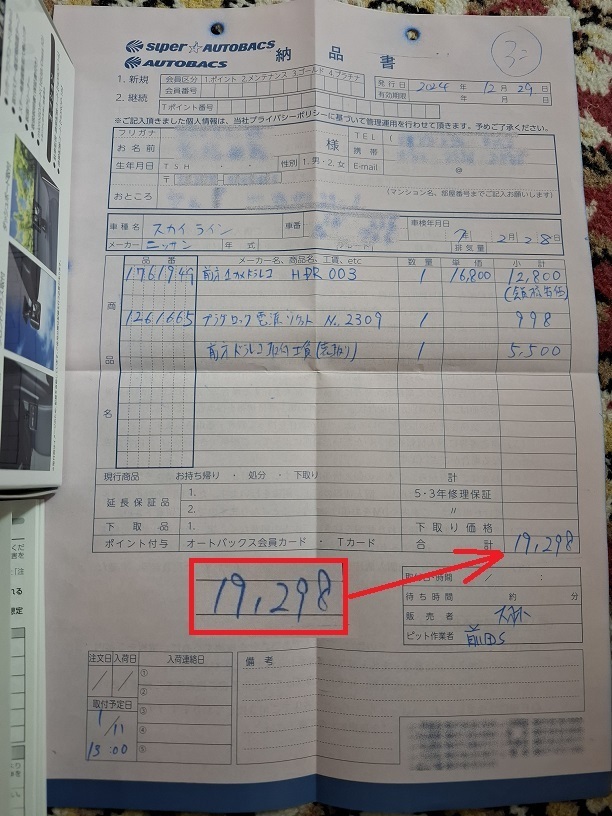 super☆AUTOBACS
AUTOBACS
納品書
32
1. 新規
会員区分 1.ポイント 2.メンテナンス 3.ゴールド 4.プラチナ
会員番号
発行日 2024年 12月 29日
有効期限 年 月 日
2. 継続
Tポイント番号
※ご記入頂きました個人情報は、当社プライバシーポリシーに基づいて管理運用を行わせて頂きます。予めご了承ください。
フリガナ
お名前
様
TEL
携帯
生年月日 T S H ・ ・ 性別 1.男・2.女 E-mail @
〒
おところ
(マンション名、部屋番号までご記入お願いします)
車種名 スカイライン 車番
車検年月日
7年 2月 28日
メーカー ニッサン 年式
排気量
品番 メーカー名、商品名、工賃、etc 数量 単価 小計
商品名
1761949 前方1カメドラレコ HDR003 1 16,800 12,800
1261665 プラグロック電源ソケット No.2309 1 998
前方ドラレコ取付工賃 1 5,500
現行商品 お持ち帰り ・ 処分 ・ 下取り 計
延長保証品 1. 5・3年修理保証
2. 〃
下取品 1. 下取り価格
ポイント付与 オートバックス会員カード ・ Tカード 合計 19,298
19,298
取付日・時間 / :
待ち時間 約 分
販売者
ピット作業者 前田S
注文日 入荷日 入荷連絡日
備考
/ / ①
②
取付予定日 ③
1/11 ④
13:00 ⑤